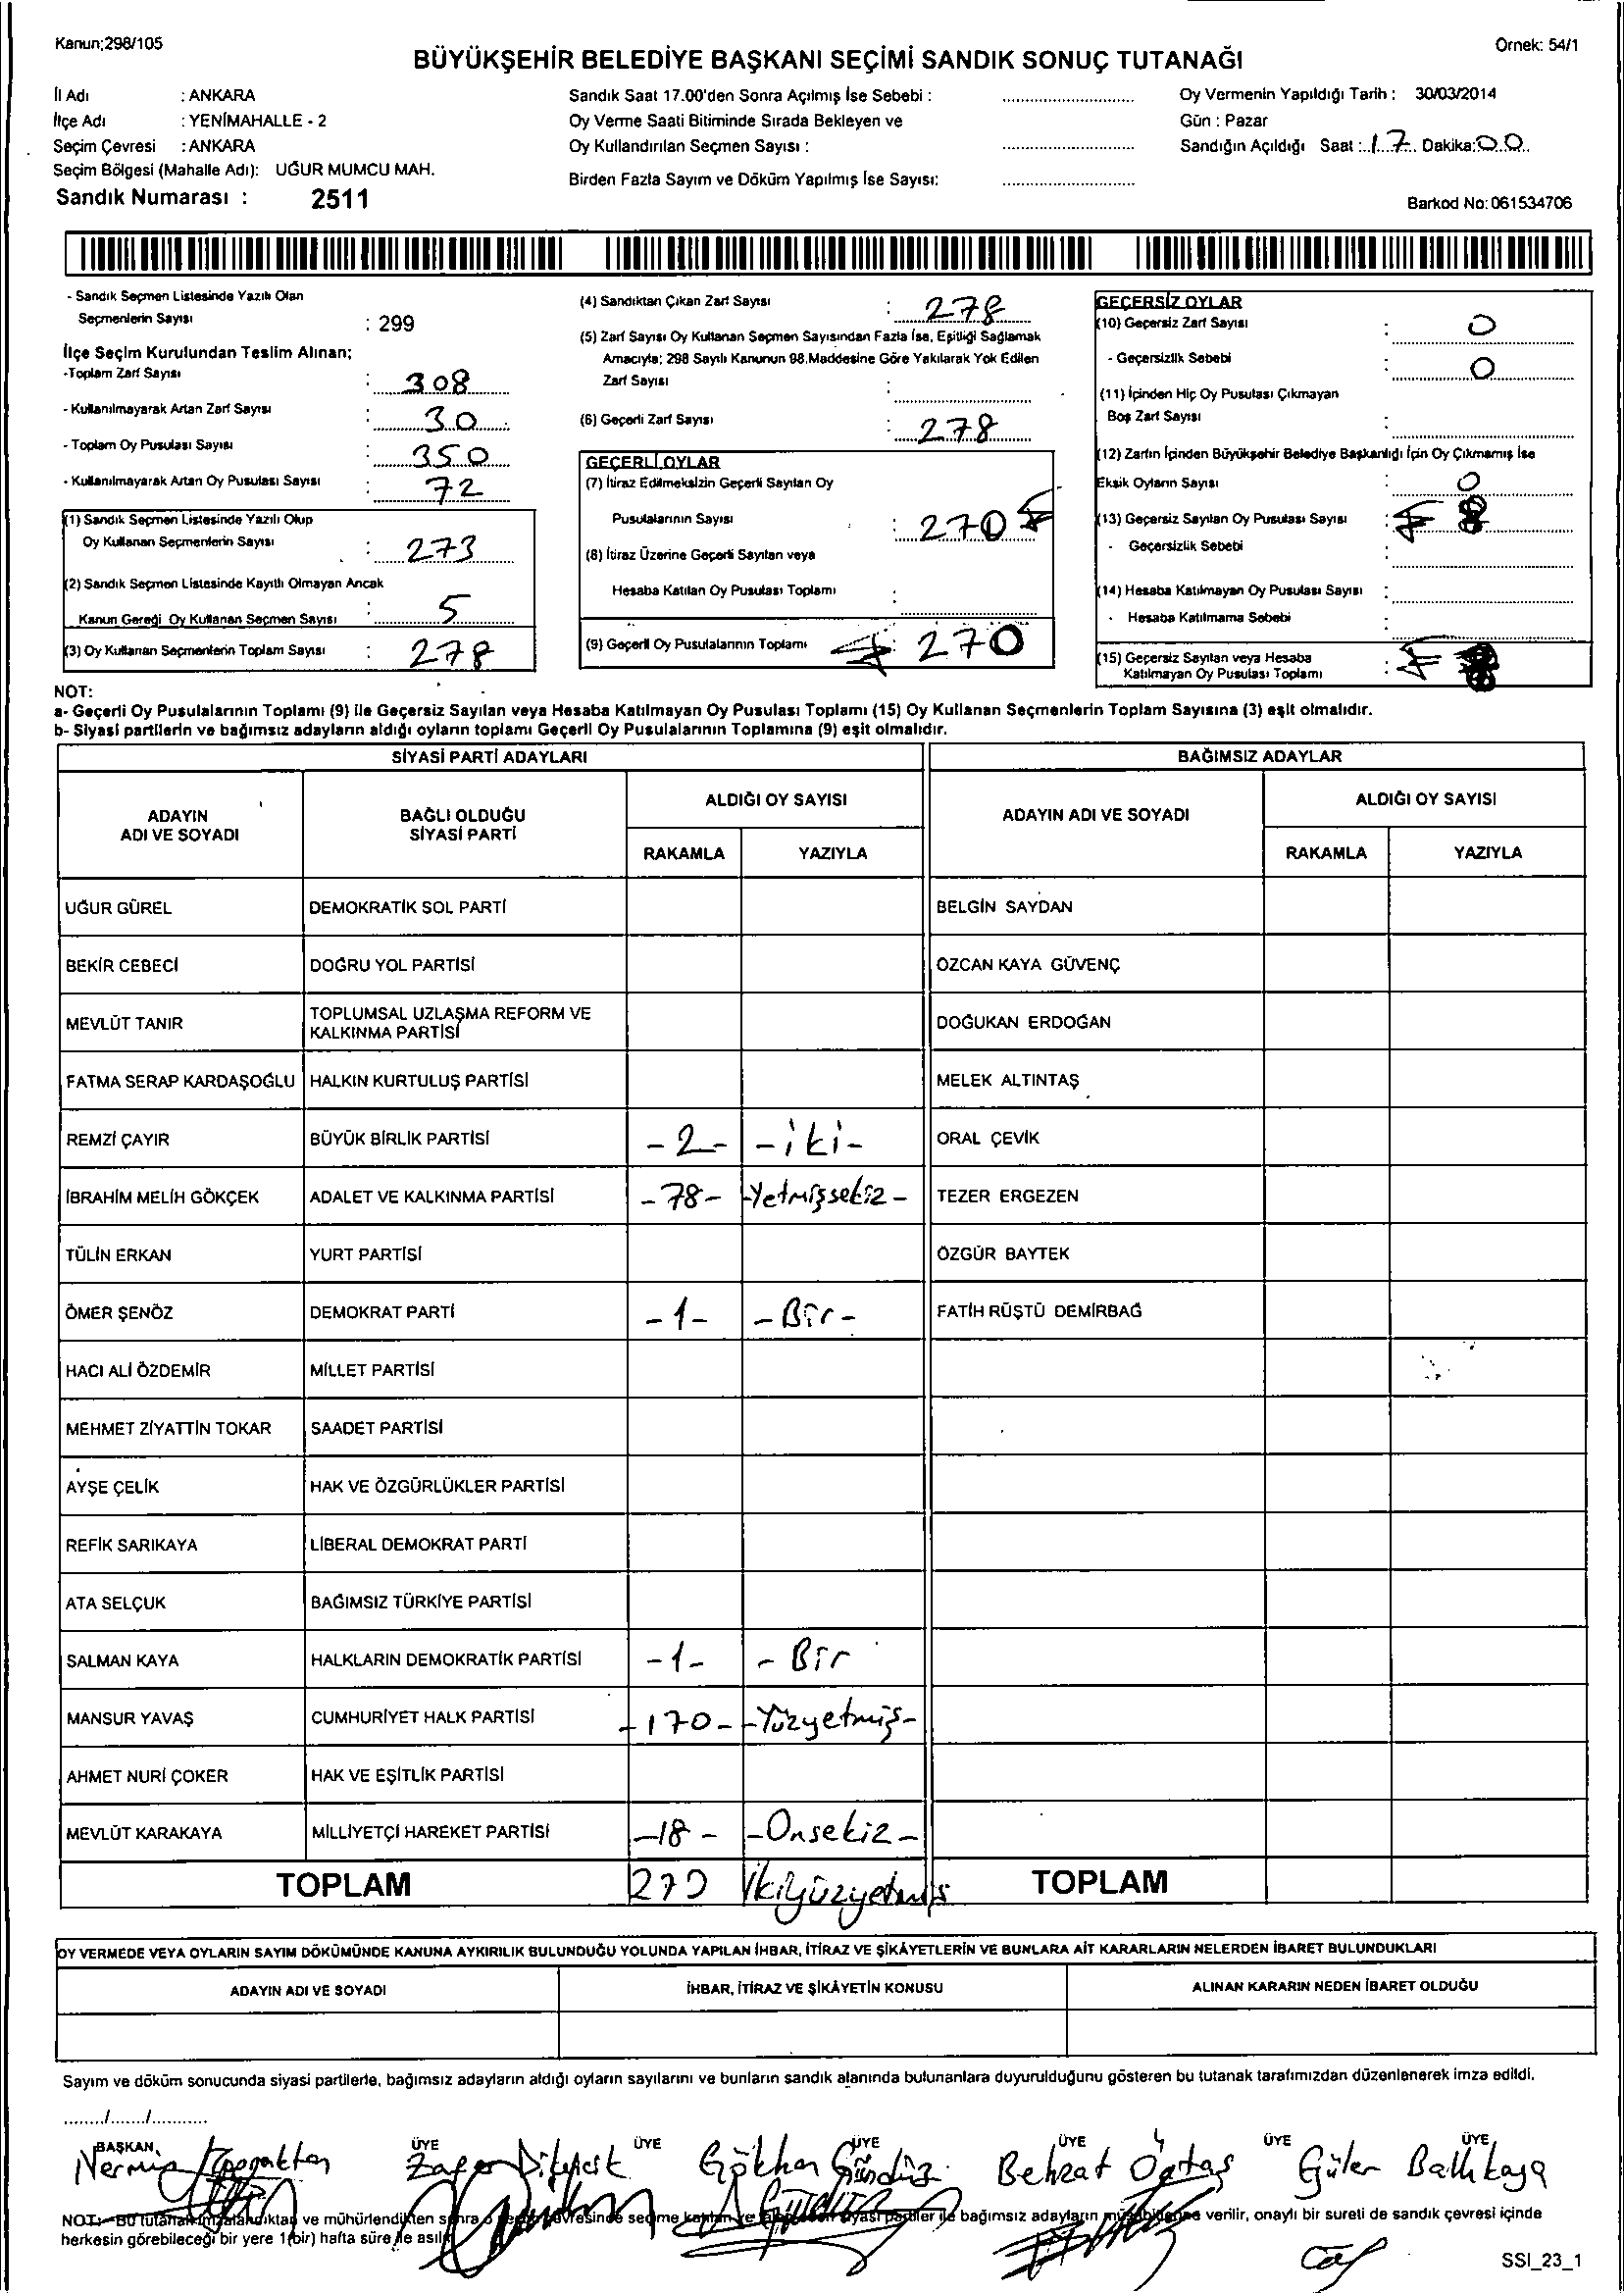 Kanun:298/105
Örnek: 54/1
BÜYÜKŞEHİR BELEDİYE BAŞKANI SEÇİMİ SANDIK SONUÇ TUTANAĞI
İl Adı : ANKARA
İlçe Adı : YENİMAHALLE - 2
Seçim Çevresi : ANKARA
Seçim Bölgesi (Mahalle Adı): UĞUR MUMCU MAH.
Sandık Numarası : 2511
Sandık Saat 17.00'den Sonra Açılmış İse Sebebi :
Oy Verme Saati Bitiminde Sırada Bekleyen ve
Oy Kullandırılan Seçmen Sayısı :
Birden Fazla Sayım ve Döküm Yapılmış İse Sayısı:
Oy Vermenin Yapıldığı Tarih : 30/03/2014
Gün : Pazar
Sandığın Açıldığı Saat : 17 Dakika: 00
Barkod No: 061534706
- Sandık Seçmen Listesinde Yazılı Olan
Seçmenlerin Sayısı : 299
İlçe Seçim Kurulundan Teslim Alınan;
-Toplam Zarf Sayısı : 308
- Kullanılmayarak Artan Zarf Sayısı : 30
- Toplam Oy Pusulası Sayısı : 350
- Kullanılmayarak Artan Oy Pusulası Sayısı : 72
(1) Sandık Seçmen Listesinde Yazılı Olup
Oy Kullanan Seçmenlerin Sayısı : 273
(2) Sandık Seçmen Listesinde Kayıtlı Olmayan Ancak
Kanun Gereği Oy Kullanan Seçmen Sayısı : 5
(3) Oy Kullanan Seçmenlerin Toplam Sayısı : 278
(4) Sandıktan Çıkan Zarf Sayısı : 278
(5) Zarf Sayısı Oy Kullanan Seçmen Sayısından Fazla İse, Eşitliği Sağlamak
Amacıyla; 298 Sayılı Kanunun 98.Maddesine Göre Yakılarak Yok Edilen
Zarf Sayısı :
(6) Geçerli Zarf Sayısı : 278
GEÇERLİ OYLAR
(7) İtiraz Edilmeksizin Geçerli Sayılan Oy
Pusulalarının Sayısı : 270
(8) İtiraz Üzerine Geçerli Sayılan veya
Hesaba Katılan Oy Pusulası Toplamı :
(9) Geçerli Oy Pusulalarının Toplamı : 270
GEÇERSİZ OYLAR
(10) Geçersiz Zarf Sayısı : 0
- Geçersizlik Sebebi : 0
(11) İçinden Hiç Oy Pusulası Çıkmayan
Boş Zarf Sayısı :
(12) Zarfın İçinden Büyükşehir Belediye Başkanlığı İçin Oy Çıkmamış İse
Eksik Oyların Sayısı : 0
(13) Geçersiz Sayılan Oy Pusulası Sayısı : 8
- Geçersizlik Sebebi :
(14) Hesaba Katılmayan Oy Pusulası Sayısı :
- Hesaba Katılmama Sebebi :
(15) Geçersiz Sayılan veya Hesaba
Katılmayan Oy Pusulası Toplamı :
NOT:
a- Geçerli Oy Pusulalarının Toplamı (9) ile Geçersiz Sayılan veya Hesaba Katılmayan Oy Pusulası Toplamı (15) Oy Kullanan Seçmenlerin Toplam Sayısına (3) eşit olmalıdır.
b- Siyasi partilerin ve bağımsız adayların aldığı oyların toplamı Geçerli Oy Pusulalarının Toplamına (9) eşit olmalıdır.
SİYASİ PARTİ ADAYLARI BAĞIMSIZ ADAYLAR
ADAYIN ADI VE SOYADI
BAĞLI OLDUĞU SİYASİ PARTİ
ALDIĞI OY SAYISI
RAKAMLA YAZIYLA
ADAYIN ADI VE SOYADI
ALDIĞI OY SAYISI
RAKAMLA YAZIYLA
UĞUR GÜREL DEMOKRATİK SOL PARTİ BELGİN SAYDAN
BEKİR CEBECİ DOĞRU YOL PARTİSİ ÖZCAN KAYA GÜVENÇ
MEVLÜT TANIR TOPLUMSAL UZLAŞMA REFORM VE KALKINMA PARTİSİ DOĞUKAN ERDOĞAN
FATMA SERAP KARDAŞOĞLU HALKIN KURTULUŞ PARTİSİ MELEK ALTINTAŞ
REMZİ ÇAYIR BÜYÜK BİRLİK PARTİSİ -2- -iki- ORAL ÇEVİK
İBRAHİM MELİH GÖKÇEK ADALET VE KALKINMA PARTİSİ -78- -Yetmişsekiz- TEZER ERGEZEN
TÜLİN ERKAN YURT PARTİSİ ÖZGÜR BAYTEK
ÖMER ŞENÖZ DEMOKRAT PARTİ -1- -Bir- FATİH RÜŞTÜ DEMİRBAĞ
HACI ALİ ÖZDEMİR MİLLET PARTİSİ
MEHMET ZİYATTİN TOKAR SAADET PARTİSİ
AYŞE ÇELİK HAK VE ÖZGÜRLÜKLER PARTİSİ
REFİK SARIKAYA LİBERAL DEMOKRAT PARTİ
ATA SELÇUK BAĞIMSIZ TÜRKİYE PARTİSİ
SALMAN KAYA HALKLARIN DEMOKRATİK PARTİSİ -1- -Bir
MANSUR YAVAŞ CUMHURİYET HALK PARTİSİ -170- -Yüzyetmiş-
AHMET NURİ ÇOKER HAK VE EŞİTLİK PARTİSİ
MEVLÜT KARAKAYA MİLLİYETÇİ HAREKET PARTİSİ -18- -Onsekiz-
TOPLAM 270 İkiyüzyetmiş TOPLAM
OY VERMEDE VEYA OYLARIN SAYIM DÖKÜMÜNDE KANUNA AYKIRILIK BULUNDUĞU YOLUNDA YAPILAN İHBAR, İTİRAZ VE ŞİKÂYETLERİN VE BUNLARA AİT KARARLARIN NELERDEN İBARET BULUNDUKLARI
ADAYIN ADI VE SOYADI İHBAR, İTİRAZ VE ŞİKÂYETİN KONUSU ALINAN KARARIN NEDEN İBARET OLDUĞU
Sayım ve döküm sonucunda siyasi partilerle, bağımsız adayların aldığı oyların sayılarını ve bunların sandık alanında bulunanlara duyurulduğunu gösteren bu tutanak tarafımızdan düzenlenerek imza edildi.
......../......./...........
BAŞKAN ÜYE ÜYE ÜYE ÜYE ÜYE ÜYE
Zafer Gökhan Gündüz Behzat Güler Ballıkaya
NOT:- Bu tutanak ve mühürlendikten sonra bağımsız adayların verilir, onaylı bir sureti de sandık çevresi içinde
herkesin görebileceği bir yere 1(bir) hafta süre ile asılır
SSI_23_1